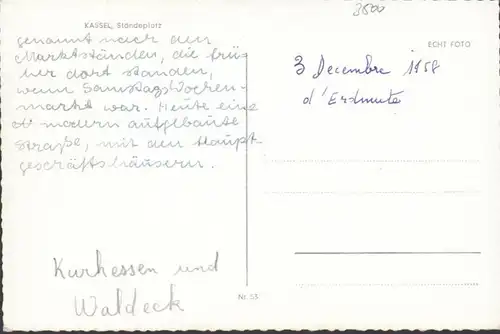 3500
KASSEL, Ständeplatz
genannt nach den
Marktständen, die frü-
her dort standen,
wenn Samstags Wochen-
markt war. Heute eine
modern aufgebaute
Straße, mit den Haupt-
geschäftshäusern.
ECHT FOTO
3 Decembre 1958
d'Erdmute
Kurhessen und
Waldeck
Nr. 53